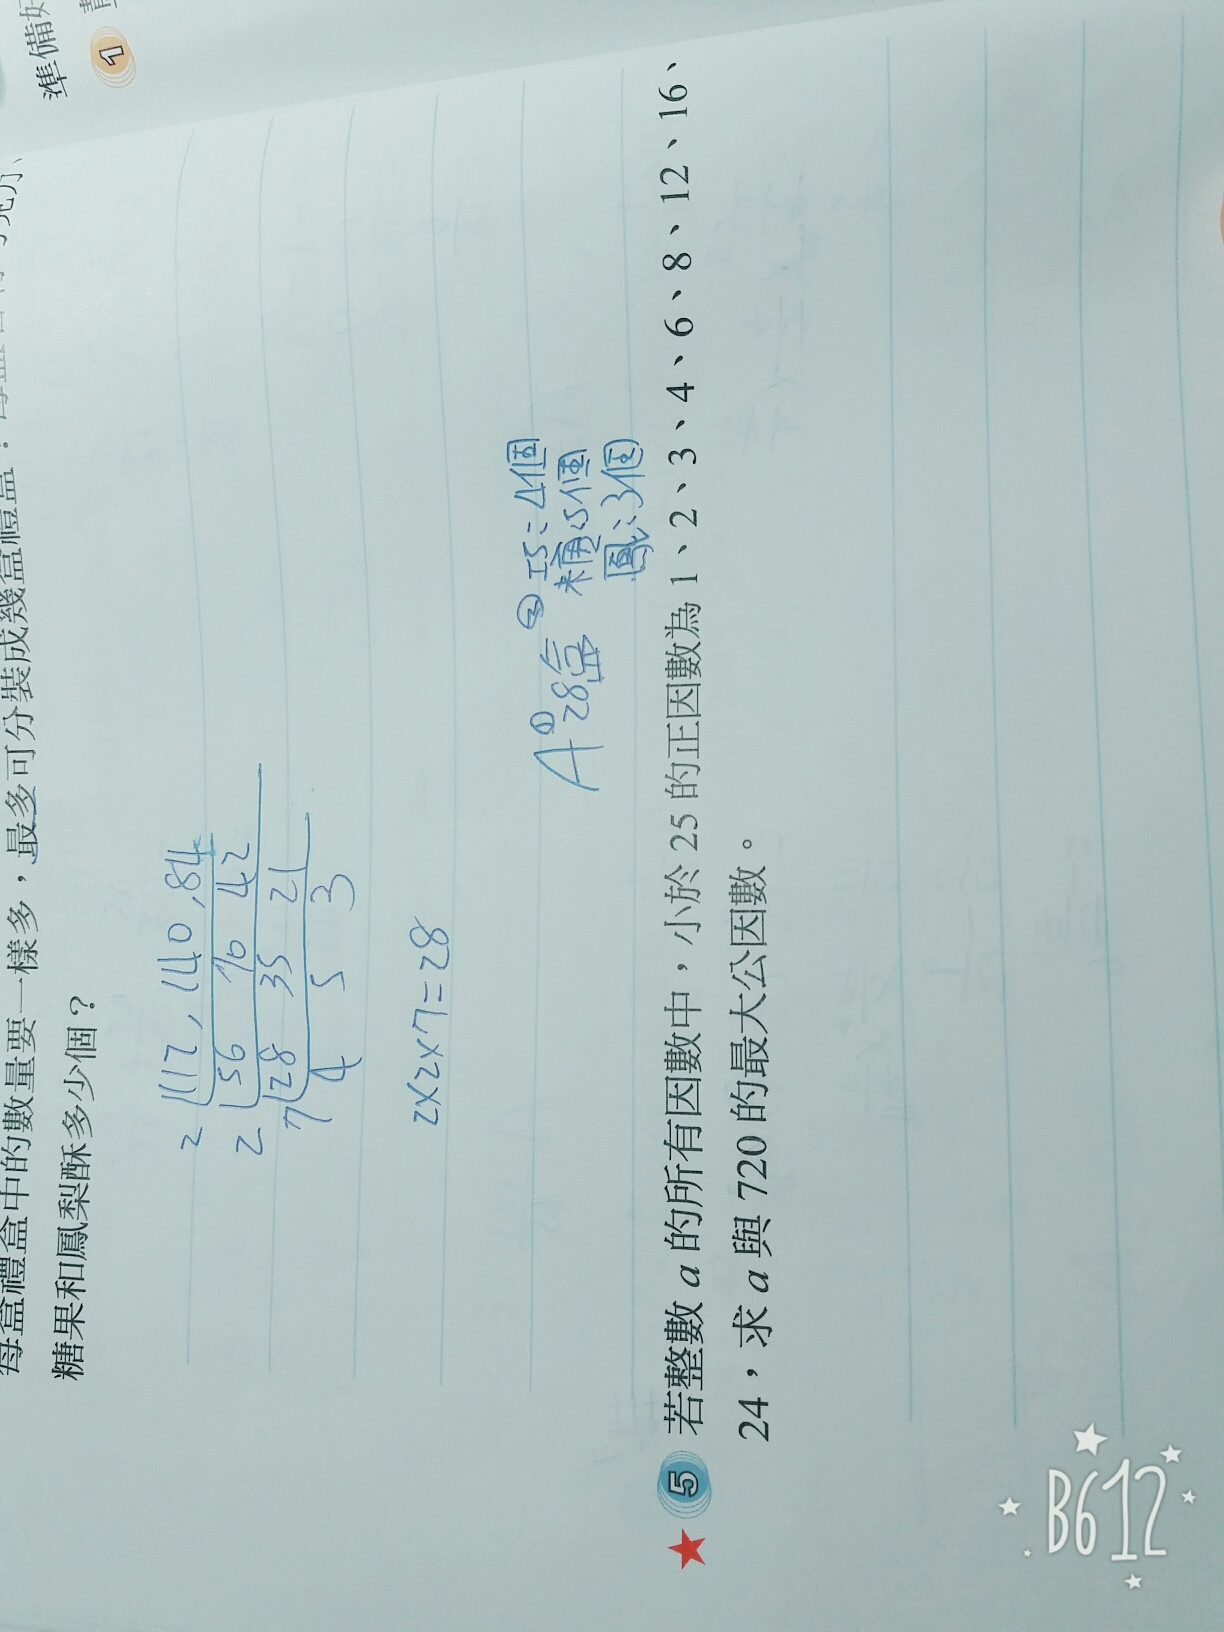 準備好
1
每盒禮盒中的數量要一樣多，最多可分裝成幾盒禮盒？每盒
糖果和鳳梨酥多少個？
2 112,140,84
2 56 70 42
7 28 35 21
4 5 3
2×2×7=28
A①28盒 ②巧:4個
糖:5個
鳳:3個
5 若整數 a 的所有因數中，小於 25 的正因數為 1、2、3、4、6、8、12、16、
24，求 a 與 720 的最大公因數。
B612